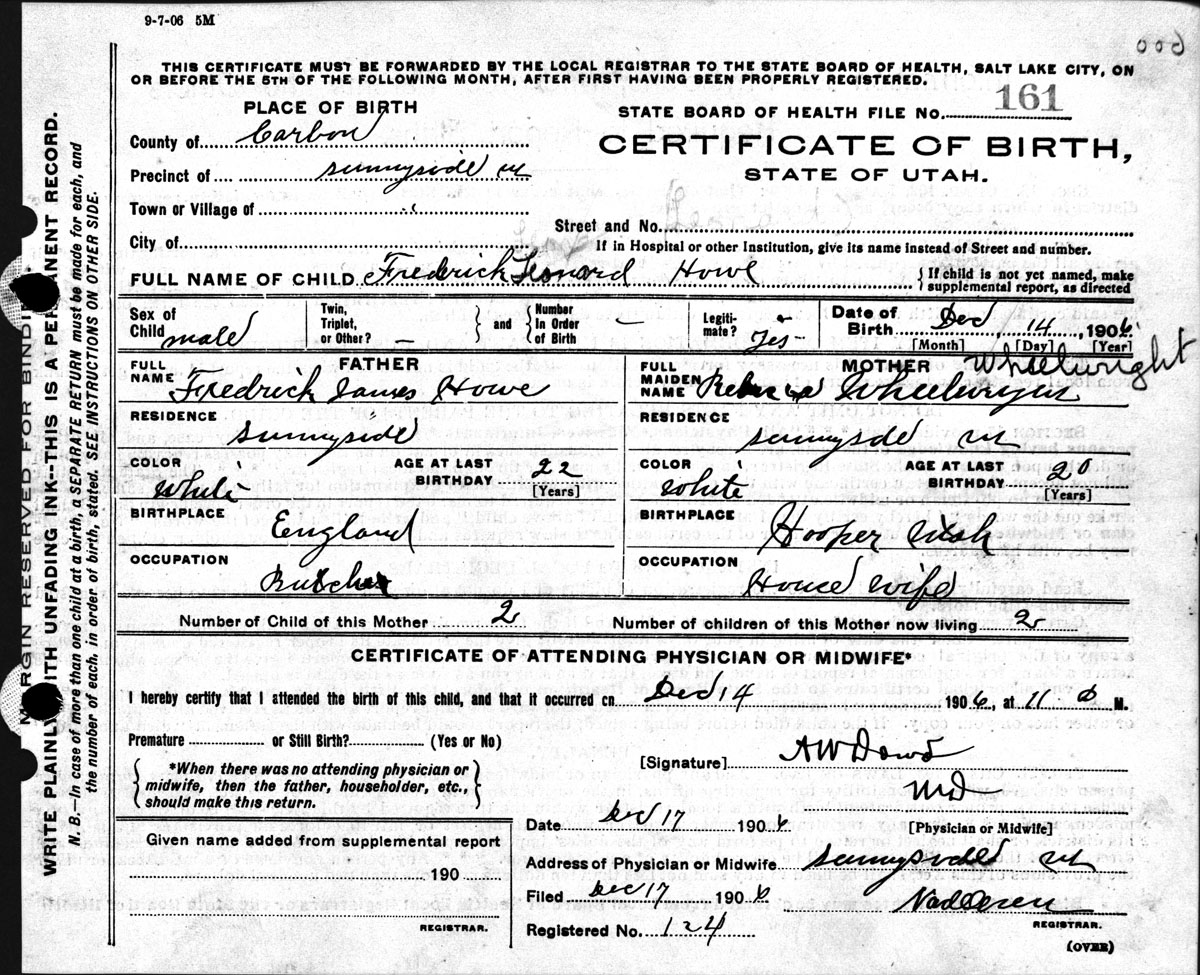 9-7-06 5M
THIS CERTIFICATE MUST BE FORWARDED BY THE LOCAL REGISTRAR TO THE STATE BOARD OF HEALTH, SALT LAKE CITY, ON
OR BEFORE THE 5TH OF THE FOLLOWING MONTH, AFTER FIRST HAVING BEEN PROPERLY REGISTERED.
PLACE OF BIRTH
STATE BOARD OF HEALTH FILE No. 161
County of Carbon
CERTIFICATE OF BIRTH,
STATE OF UTAH.
Precinct of Sunnyside Ut
Town or Village of
Street and No.
City of
If in Hospital or other Institution, give its name instead of Street and number.
FULL NAME OF CHILD Fredrick Leonard Howe
{ If child is not yet named, make
supplemental report, as directed
Sex of Child male
Twin, Triplet, or Other? — } and { Number in Order of Birth —
Legitimate? Yes
Date of Birth Dec 14 1906
[Month] [Day] [Year]
FATHER
FULL NAME Fredrick James Howe
MOTHER Wheelwright
FULL MAIDEN NAME Wheelwright
RESIDENCE Sunnyside
RESIDENCE Sunnyside Ut
COLOR White
AGE AT LAST BIRTHDAY 22 [Years]
COLOR White
AGE AT LAST BIRTHDAY 20 [Years]
BIRTHPLACE England
BIRTHPLACE Hooper Utah
OCCUPATION Butcher
OCCUPATION House wife
Number of Child of this Mother 2
Number of children of this Mother now living 2
CERTIFICATE OF ATTENDING PHYSICIAN OR MIDWIFE*
I hereby certify that I attended the birth of this child, and that it occurred on Dec 14 1906, at 11 M.
Premature or Still Birth? (Yes or No)
[Signature] A W Dowd
MD
{ *When there was no attending physician or
midwife, then the father, householder, etc.,
should make this return. }
Date Dec 17 1906
[Physician or Midwife]
Given name added from supplemental report
190
REGISTRAR.
Address of Physician or Midwife Sunnyside Ut
Filed Dec 17 1906
REGISTRAR.
Registered No. 124
(OVER)
MARGIN RESERVED FOR BINDING
WRITE PLAINLY WITH UNFADING INK--THIS IS A PERMANENT RECORD.
N. B.—In case of more than one child at a birth, a SEPARATE RETURN must be made for each, and
the number of each, in order of birth, stated. SEE INSTRUCTIONS ON OTHER SIDE.